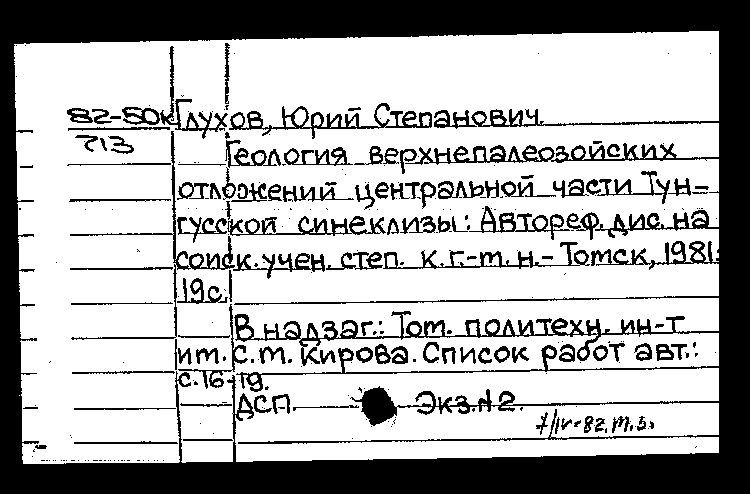 82-50к Глухов, Юрий Степанович.
713
Геология верхнепалеозойских
отложений центральной части Тун-
гусской синеклизы: Автореф. дис. на
соиск. учен. степ. к. г.-м. н. - Томск, 1981.
19с.
В надзаг.: Том. политехн. ин-т
им. С. М. Кирова. Список работ авт.:
с. 16-19.
ДСП. Экз. №2.
7/IV-82.